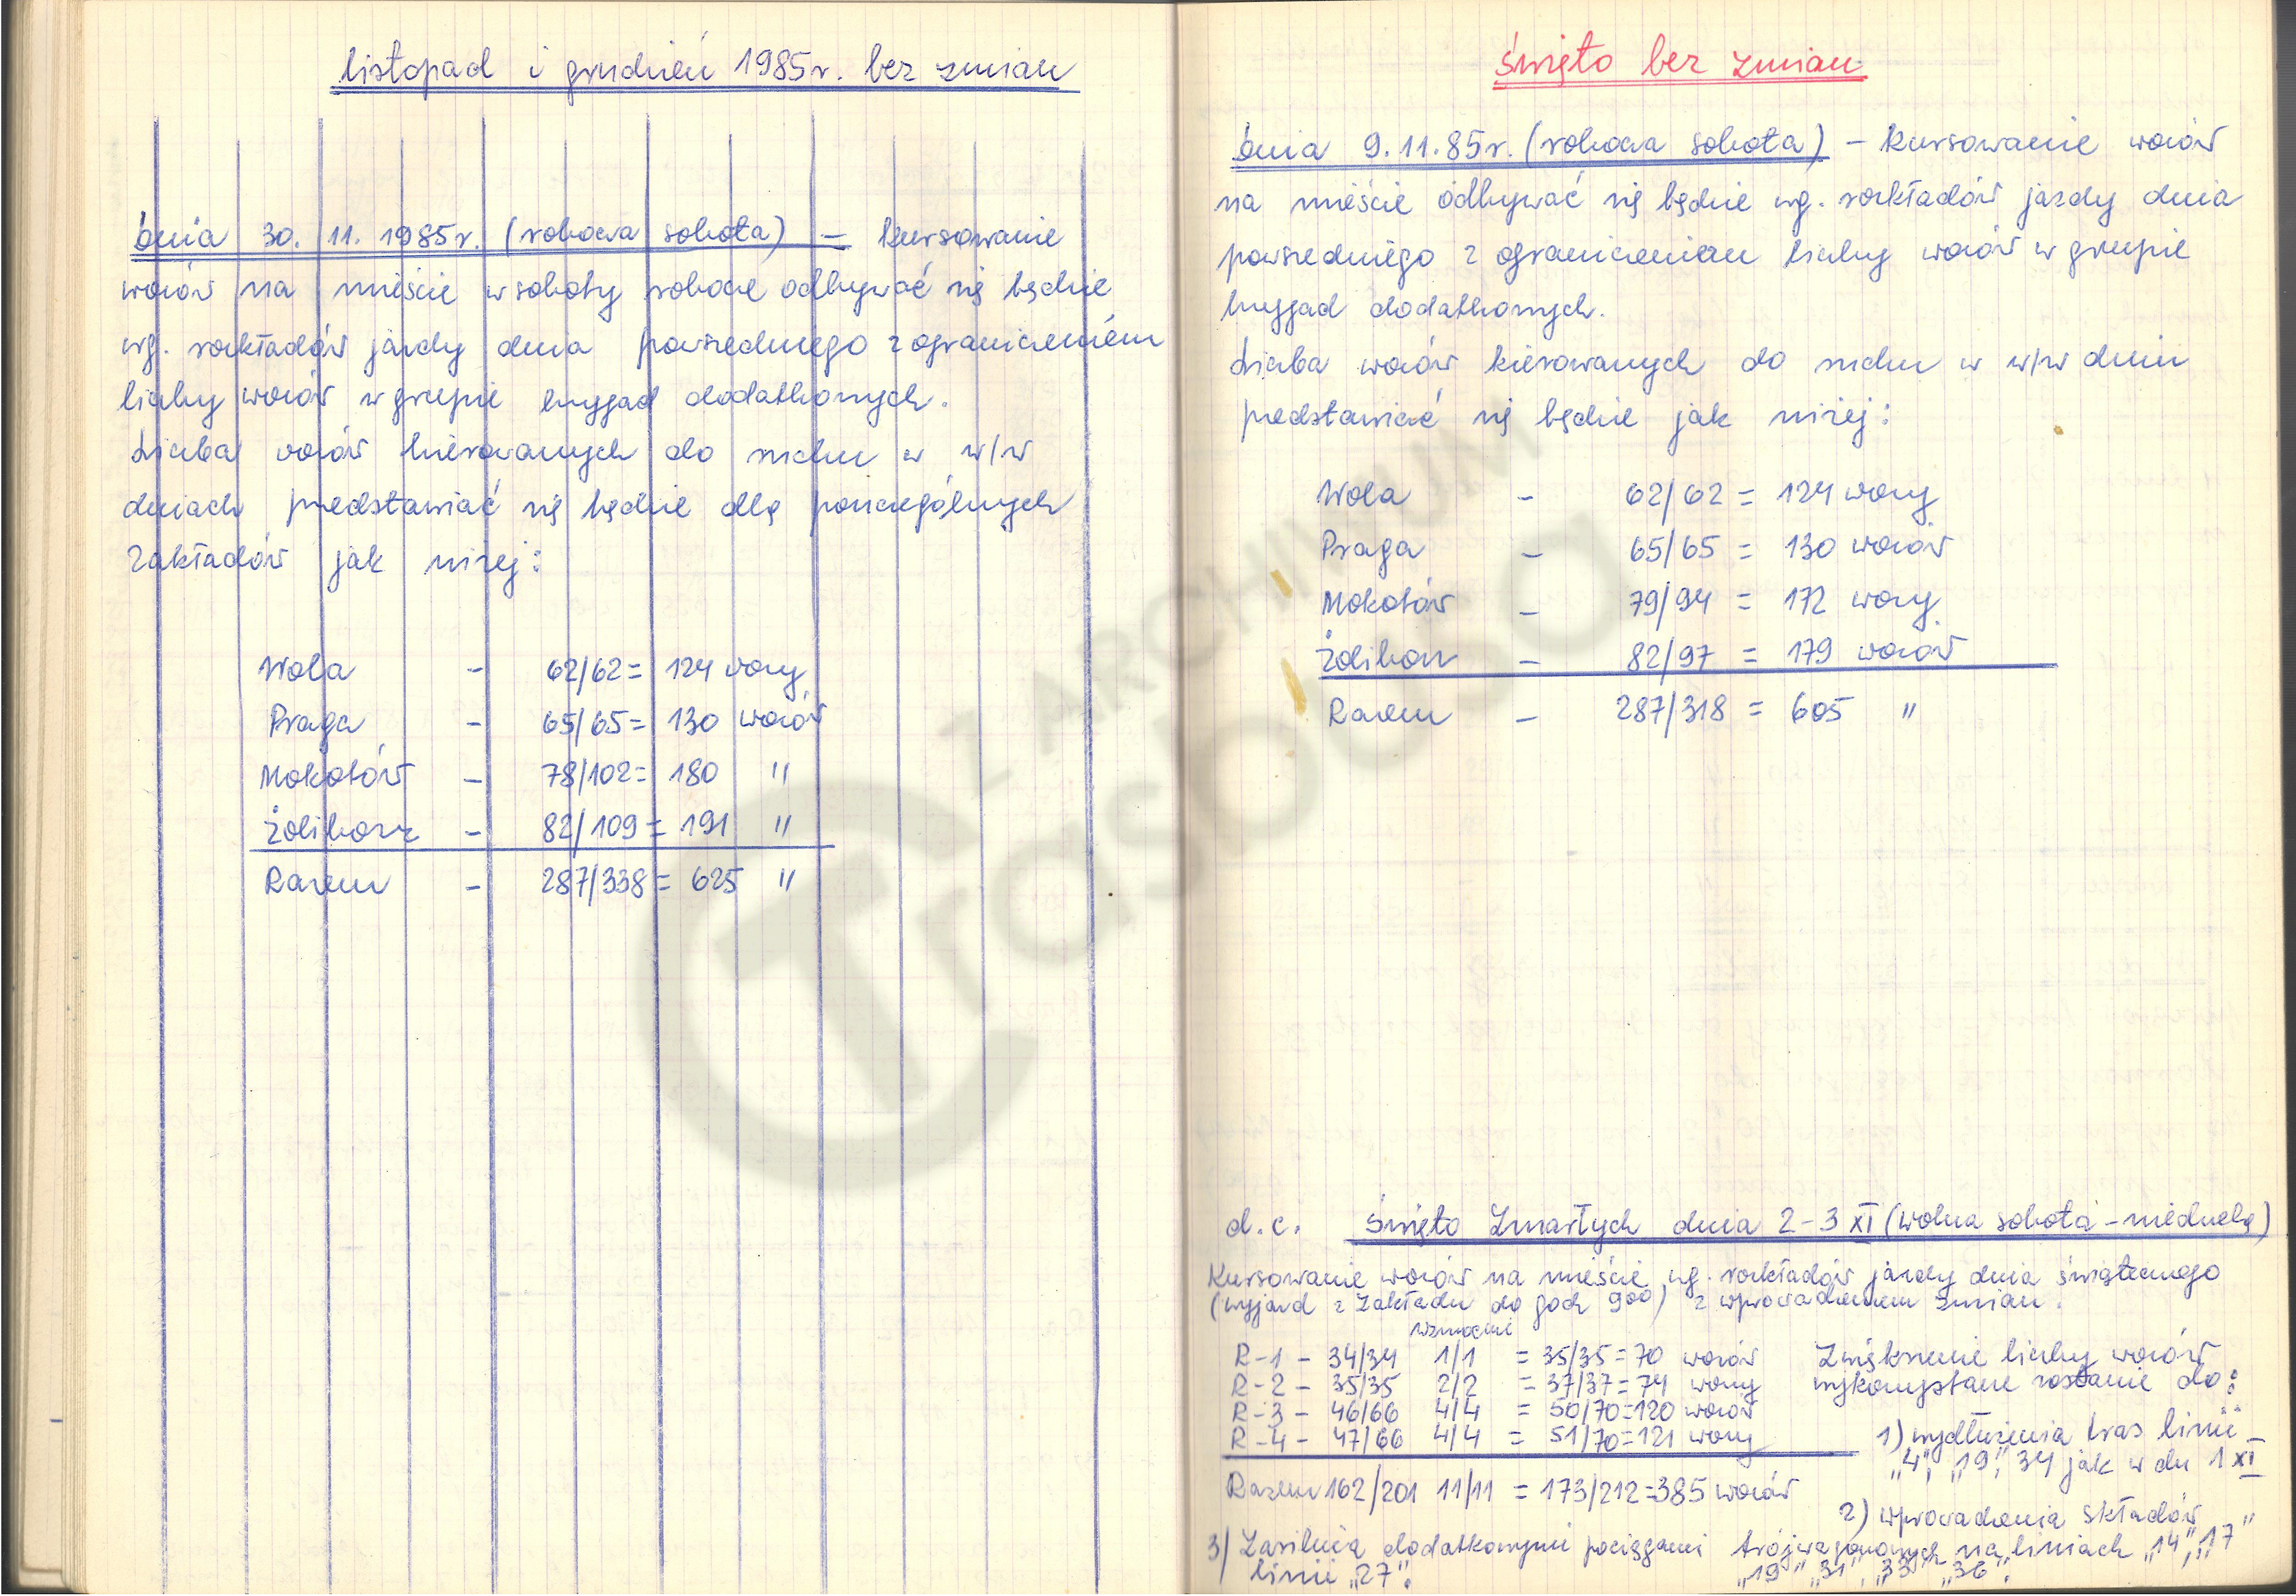 listopad i grudzień 1985r. bez zmian
Dnia 30. 11. 1985r. (robocza sobota) – kursowanie
wozów na mieście w soboty robocze odbywać się będzie
wg. rozkładów jazdy dnia powszedniego z ograniczeniem
liczby wozów w grupie brygad dodatkowych.
Liczba wozów kierowanych do ruchu w w/w
dniach przedstawiać się będzie dla poszczególnych
Zakładów jak niżej:
Wola – 62/62 = 124 wozy
Praga – 65/65 = 130 wozów
Mokotów – 78/102 = 180 "
Żoliborz – 82/109 = 191 "
Razem – 287/338 = 625 "
Święto bez zmian
Dnia 9.11.85r. (robocza sobota) – kursowanie wozów
na mieście odbywać się będzie wg. rozkładów jazdy dnia
powszedniego z ograniczeniem liczby wozów w grupie
brygad dodatkowych.
Liczba wozów kierowanych do ruchu w w/w dniu
przedstawiać się będzie jak niżej:
Wola – 62/62 = 124 wozy
Praga – 65/65 = 130 wozów
Mokotów – 79/94 = 172 wozy
Żoliborz – 82/97 = 179 wozów
Razem – 287/318 = 605 "
d.c. Święto Zmarłych dnia 2-3 XI (wolna sobota - niedziela)
Kursowanie wozów na mieście wg. rozkładów jazdy dnia świątecznego
(wyjazd z Zakładu do godz 9⁰⁰) z wprowadzeniem zmian.
wzmocni
R-1 – 34/34 1/1 = 35/35 = 70 wozów
R-2 – 35/35 2/2 = 37/37 = 74 wozy
R-3 – 46/66 4/4 = 50/70 = 120 wozów
R-4 – 47/66 4/4 = 51/70 = 121 wozy
Razem 162/201 11/11 = 173/212 = 385 wozów
Zwiększenie liczby wozów
wykorzystane zostanie do:
1) wydłużenia tras linii
„4", „19", 34 jak w dn 1 XI
2) wprowadzenia składów
trójwagonowych na liniach „14", „17"
„19" „31", „33" „36".
3) Zasilenia dodatkowymi pociągami
linii „27".
Z ARCHIWUM
TRASBUSA